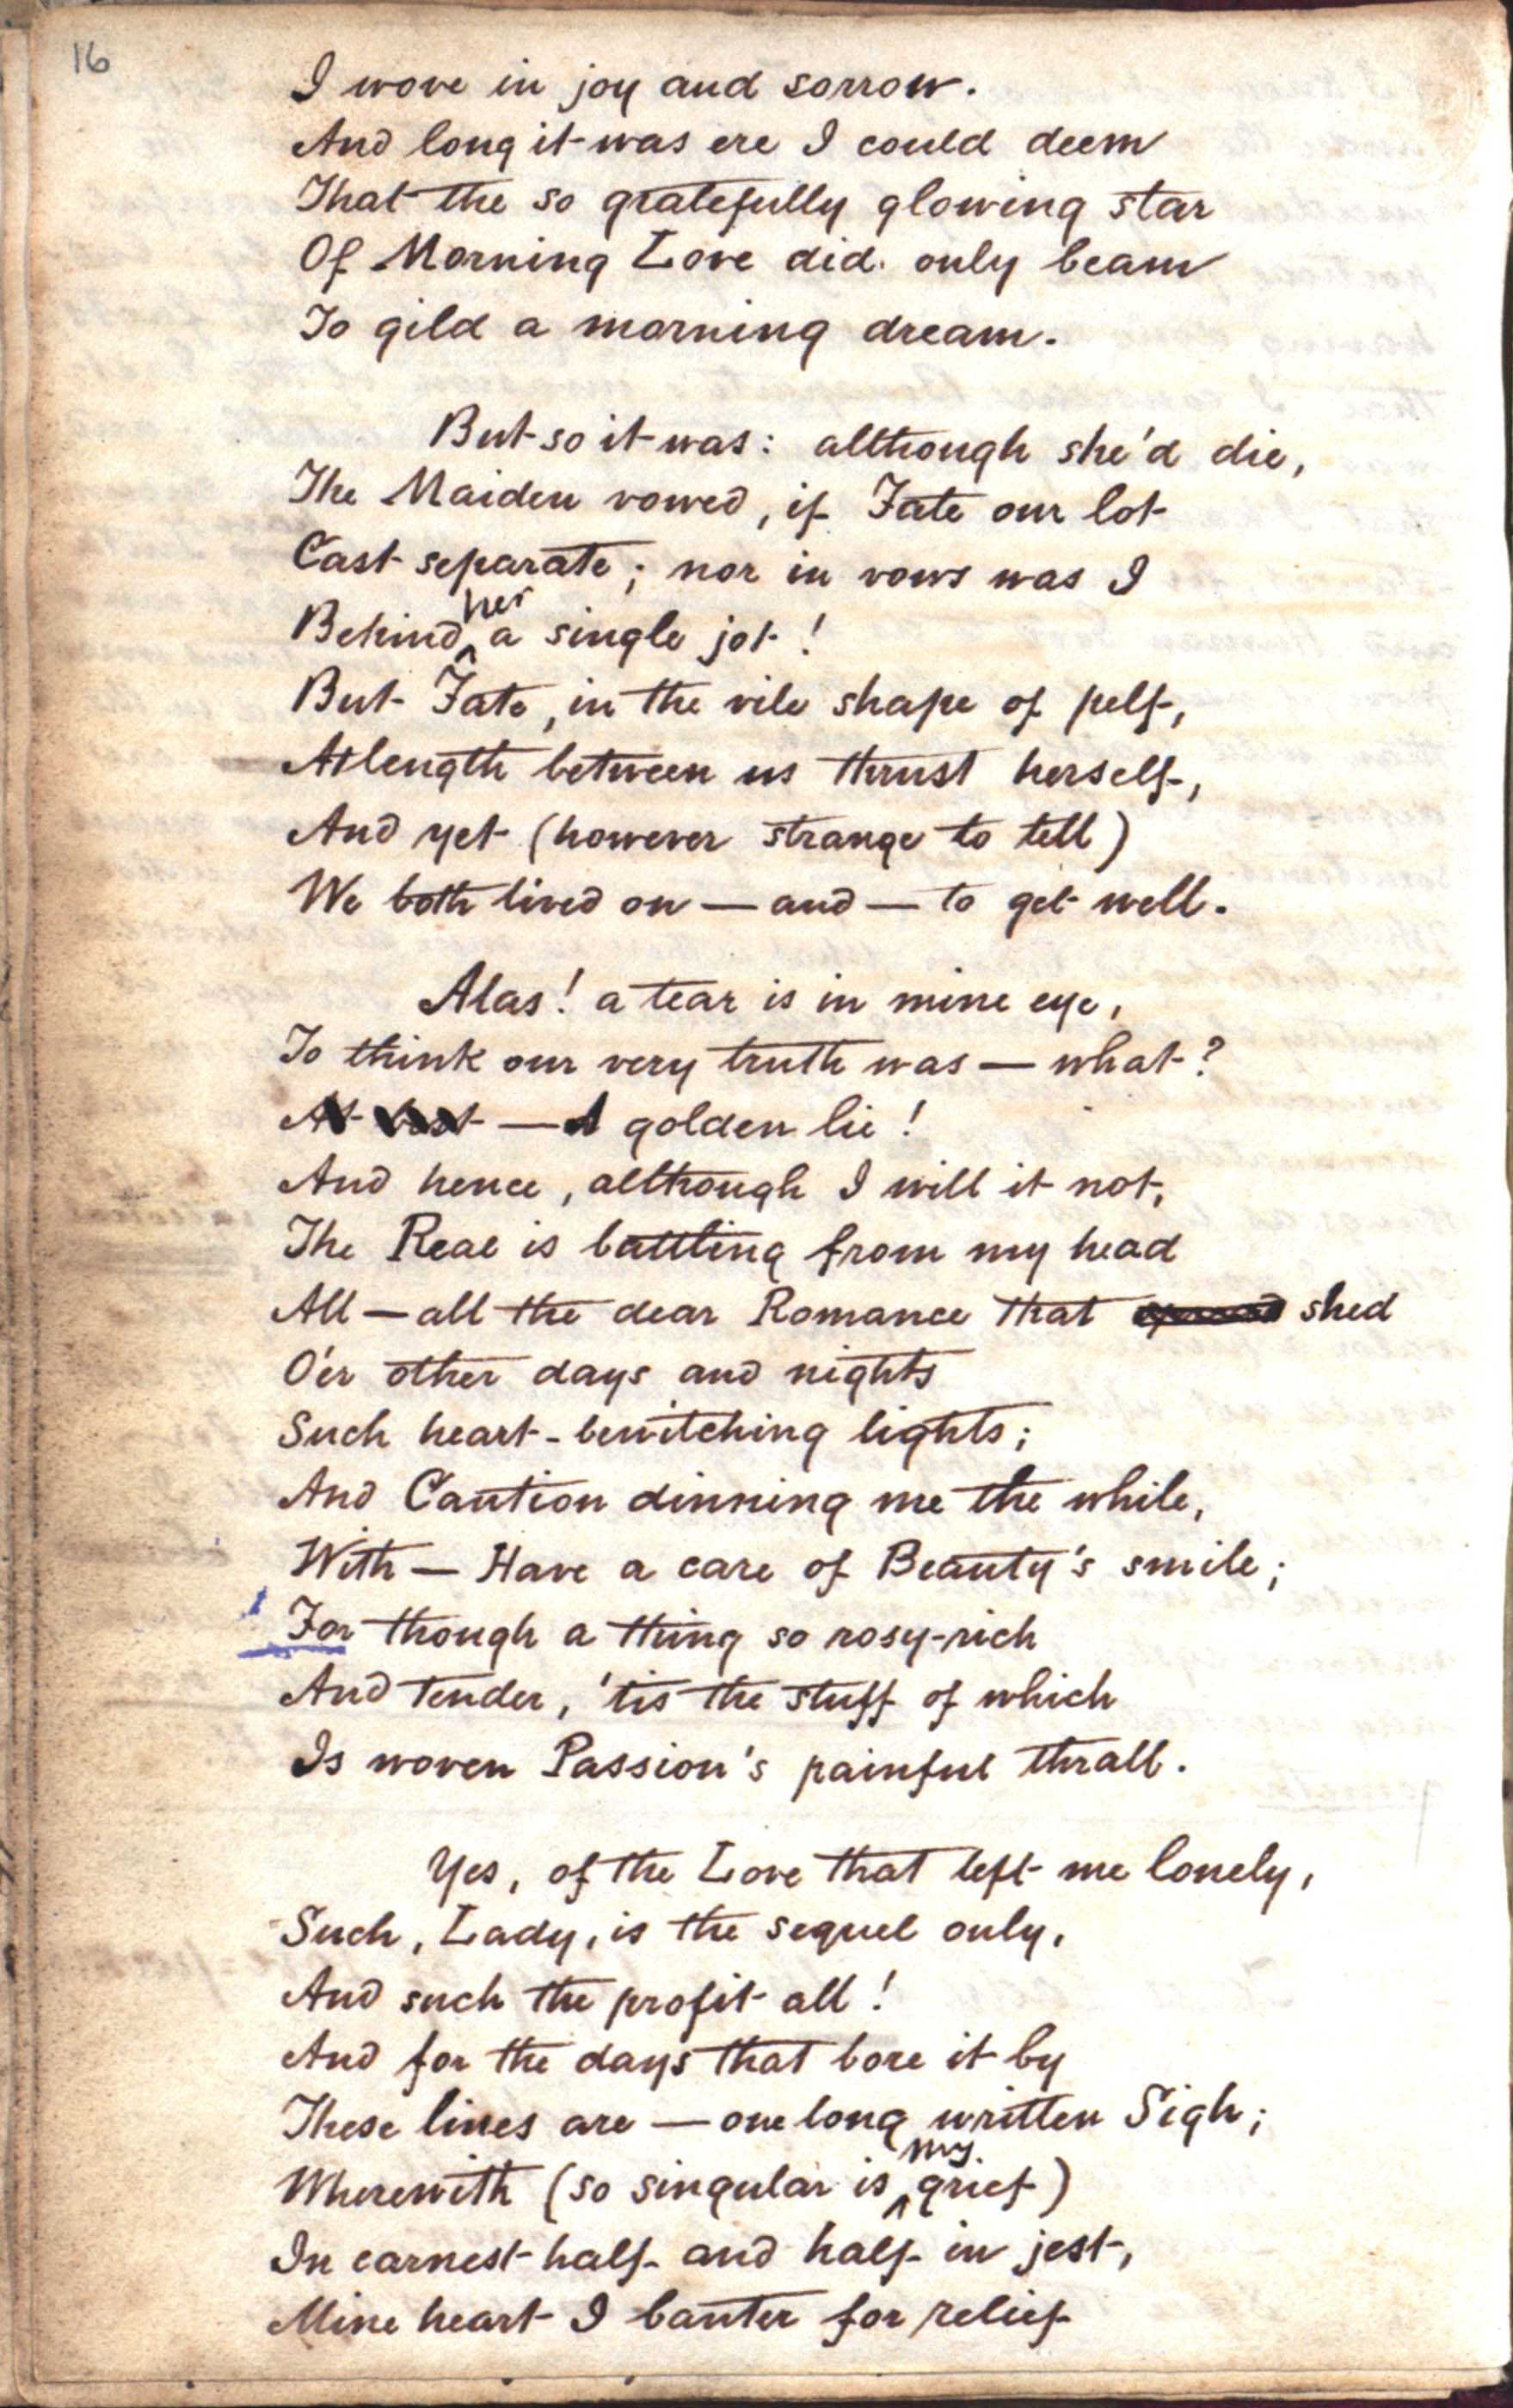 16
I wove in joy and sorrow.
And long it was ere I could deem
That the so gratefully glowing star
Of Morning Love did only beam
To gild a morning dream.
But so it was: although she'd die,
The Maiden vowed, if Fate our lot
Cast separate; nor in vows was I
Behind her a single jot!
But Fate, in the vile shape of pelf,
At length between us thrust herself,
And yet (however strange to tell)
We both lived on — and — to get well.
Alas! a tear is in mine eye,
To think our very truth was — what?
At best — A golden lie!
And hence, although I will it not,
The Real is battling from my head
All — all the dear Romance that shed
O'er other days and nights
Such heart-bewitching lights;
And Caution dinning me the while,
With — Have a care of Beauty's smile;
For though a thing so rosy-rich
And tender, 'tis the stuff of which
Is woven Passion's painful thrall.
Yes, of the Love that left me lonely,
Such, Lady, is the sequel only,
And such the profit all!
And for the days that bore it by
These lines are — one long written Sigh;
Wherewith (so singular is my grief)
In earnest half and half in jest,
Mine heart I banter for relief